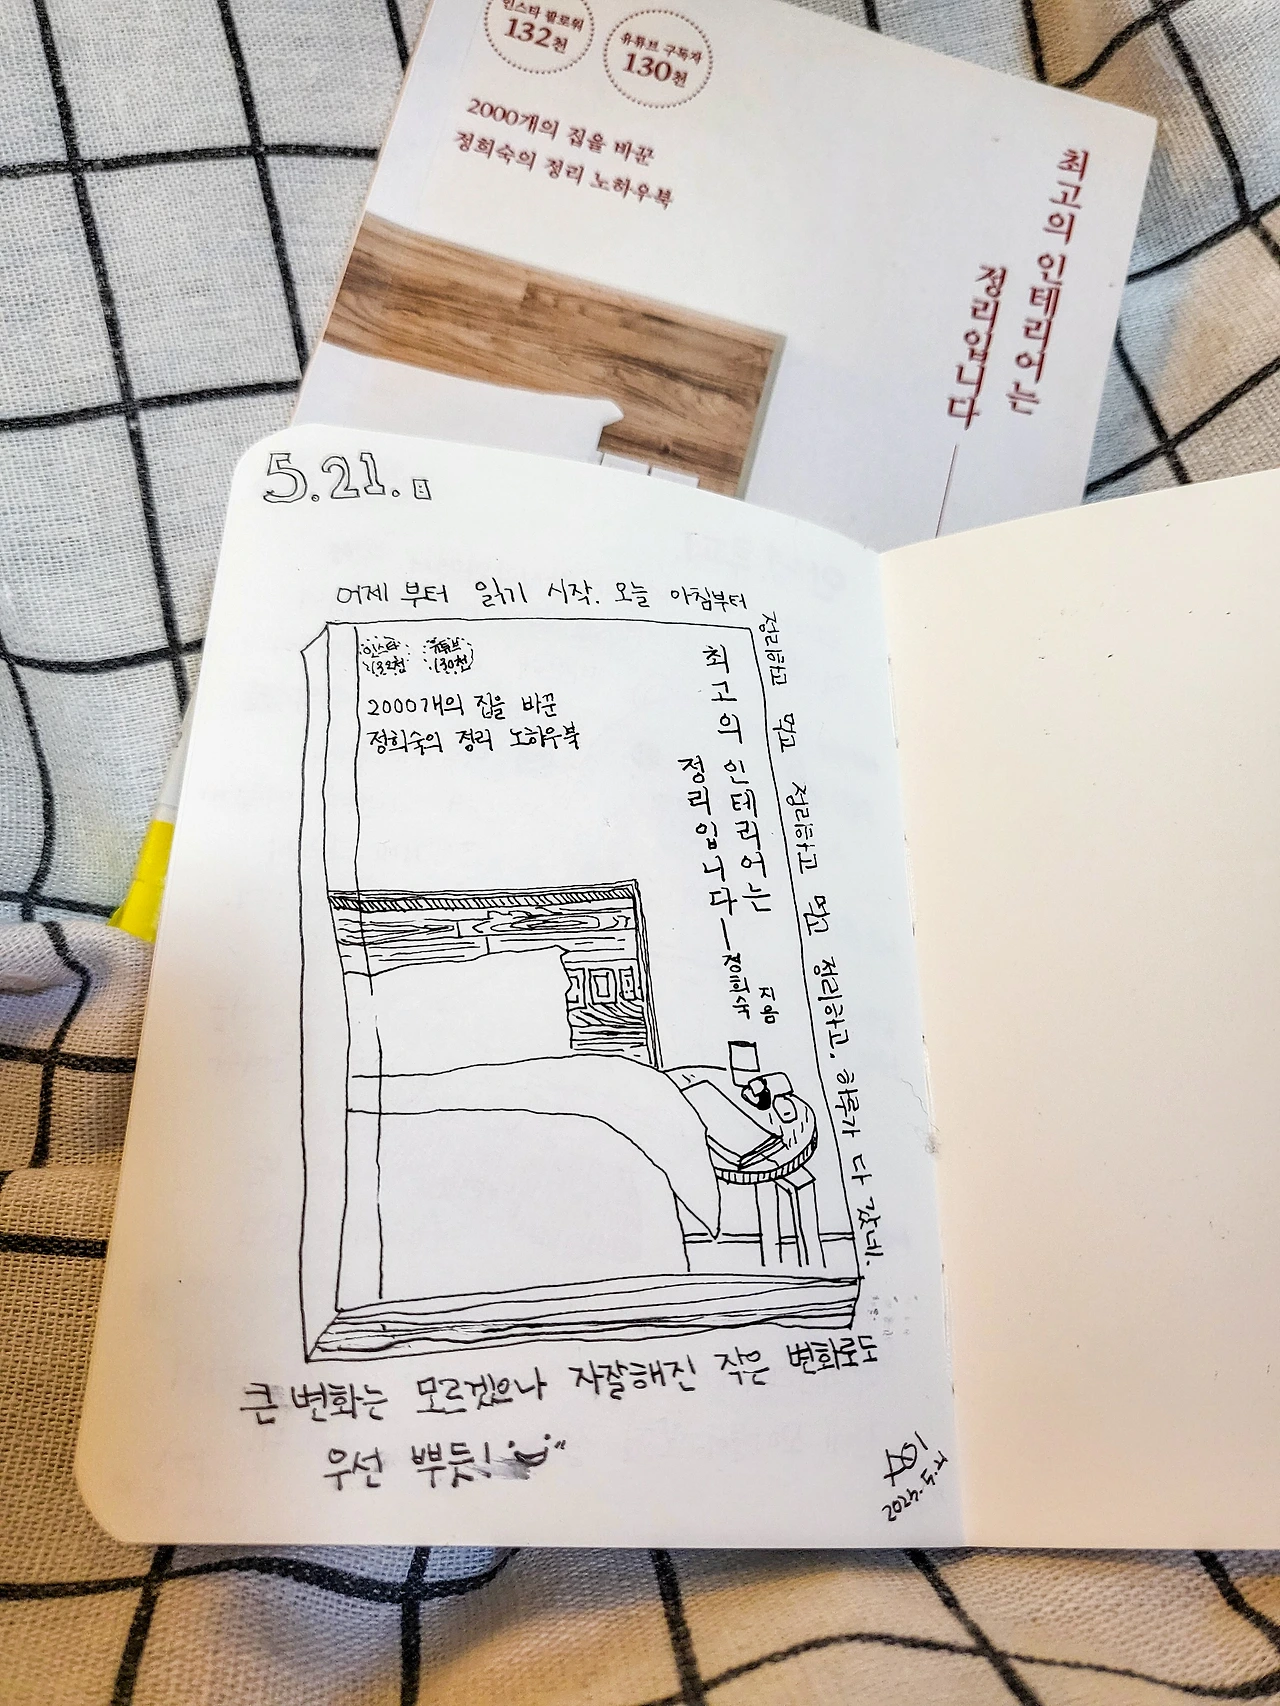 인스타 팔로워
132천
유튜브 구독자
130천
2000개의 집을 바꾼
정희숙의 정리 노하우북
최고의 인테리어는
정리입니다
5.21.
어제 부터 읽기 시작. 오늘 아침부터
정리하고 먹고 정리하고 먹고 정리하고. 하루가 다 갔네.
인스타
132천
유튜브
130천
2000개의 집을 바꾼
정희숙의 정리 노하우북
최고의 인테리어는
정리입니다 - 정희숙 지음
큰 변화는 모르겠으나 자잘해진 작은 변화로도
우선 뿌듯!